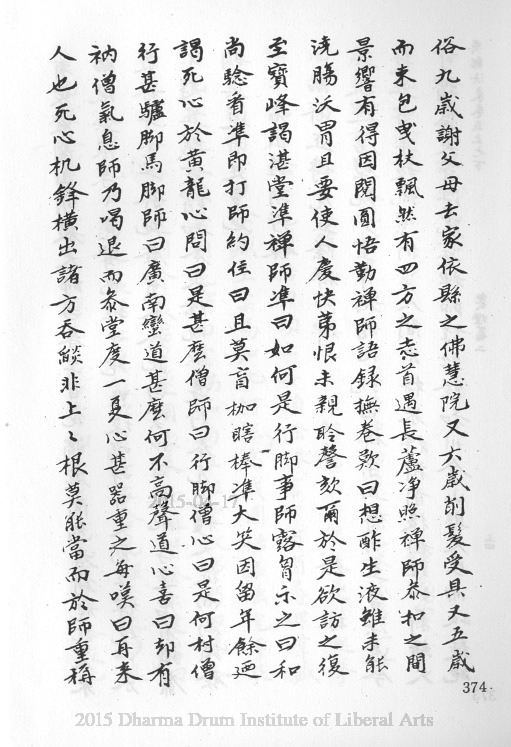 俗九歲謝父母去家依縣之佛慧院又六歲削髮受具又五歲
而束包曳杖飄然有四方之志首遇長蘆淨照禪師恭扣之間
景響有得因閱圓悟勤禪師語録撫卷歎曰想酢生液雖未能
澆腸沃胃且要使人慶快第恨未親聆謦欬爾於是欲訪之復
至寶峰謁湛堂準禪師準曰如何是行脚事師露胷示之曰和
尚驗看準即打師約住曰且莫盲枷瞎棒準大笑因留年餘廼
謁死心於黃龍心問曰是甚麽僧師曰行脚僧心曰是何村僧
行甚驢脚馬脚師曰廣南蠻道甚麽何不高聲道心喜曰却有
衲僧氣息師乃喝退而參堂度一夏心甚器重之每嘆曰再来
人也死心机鋒橫出諸方吞燄非上〻根莫能當而於師重稱
374
2015-04-17
2015 Dharma Drum Institute of Liberal Arts